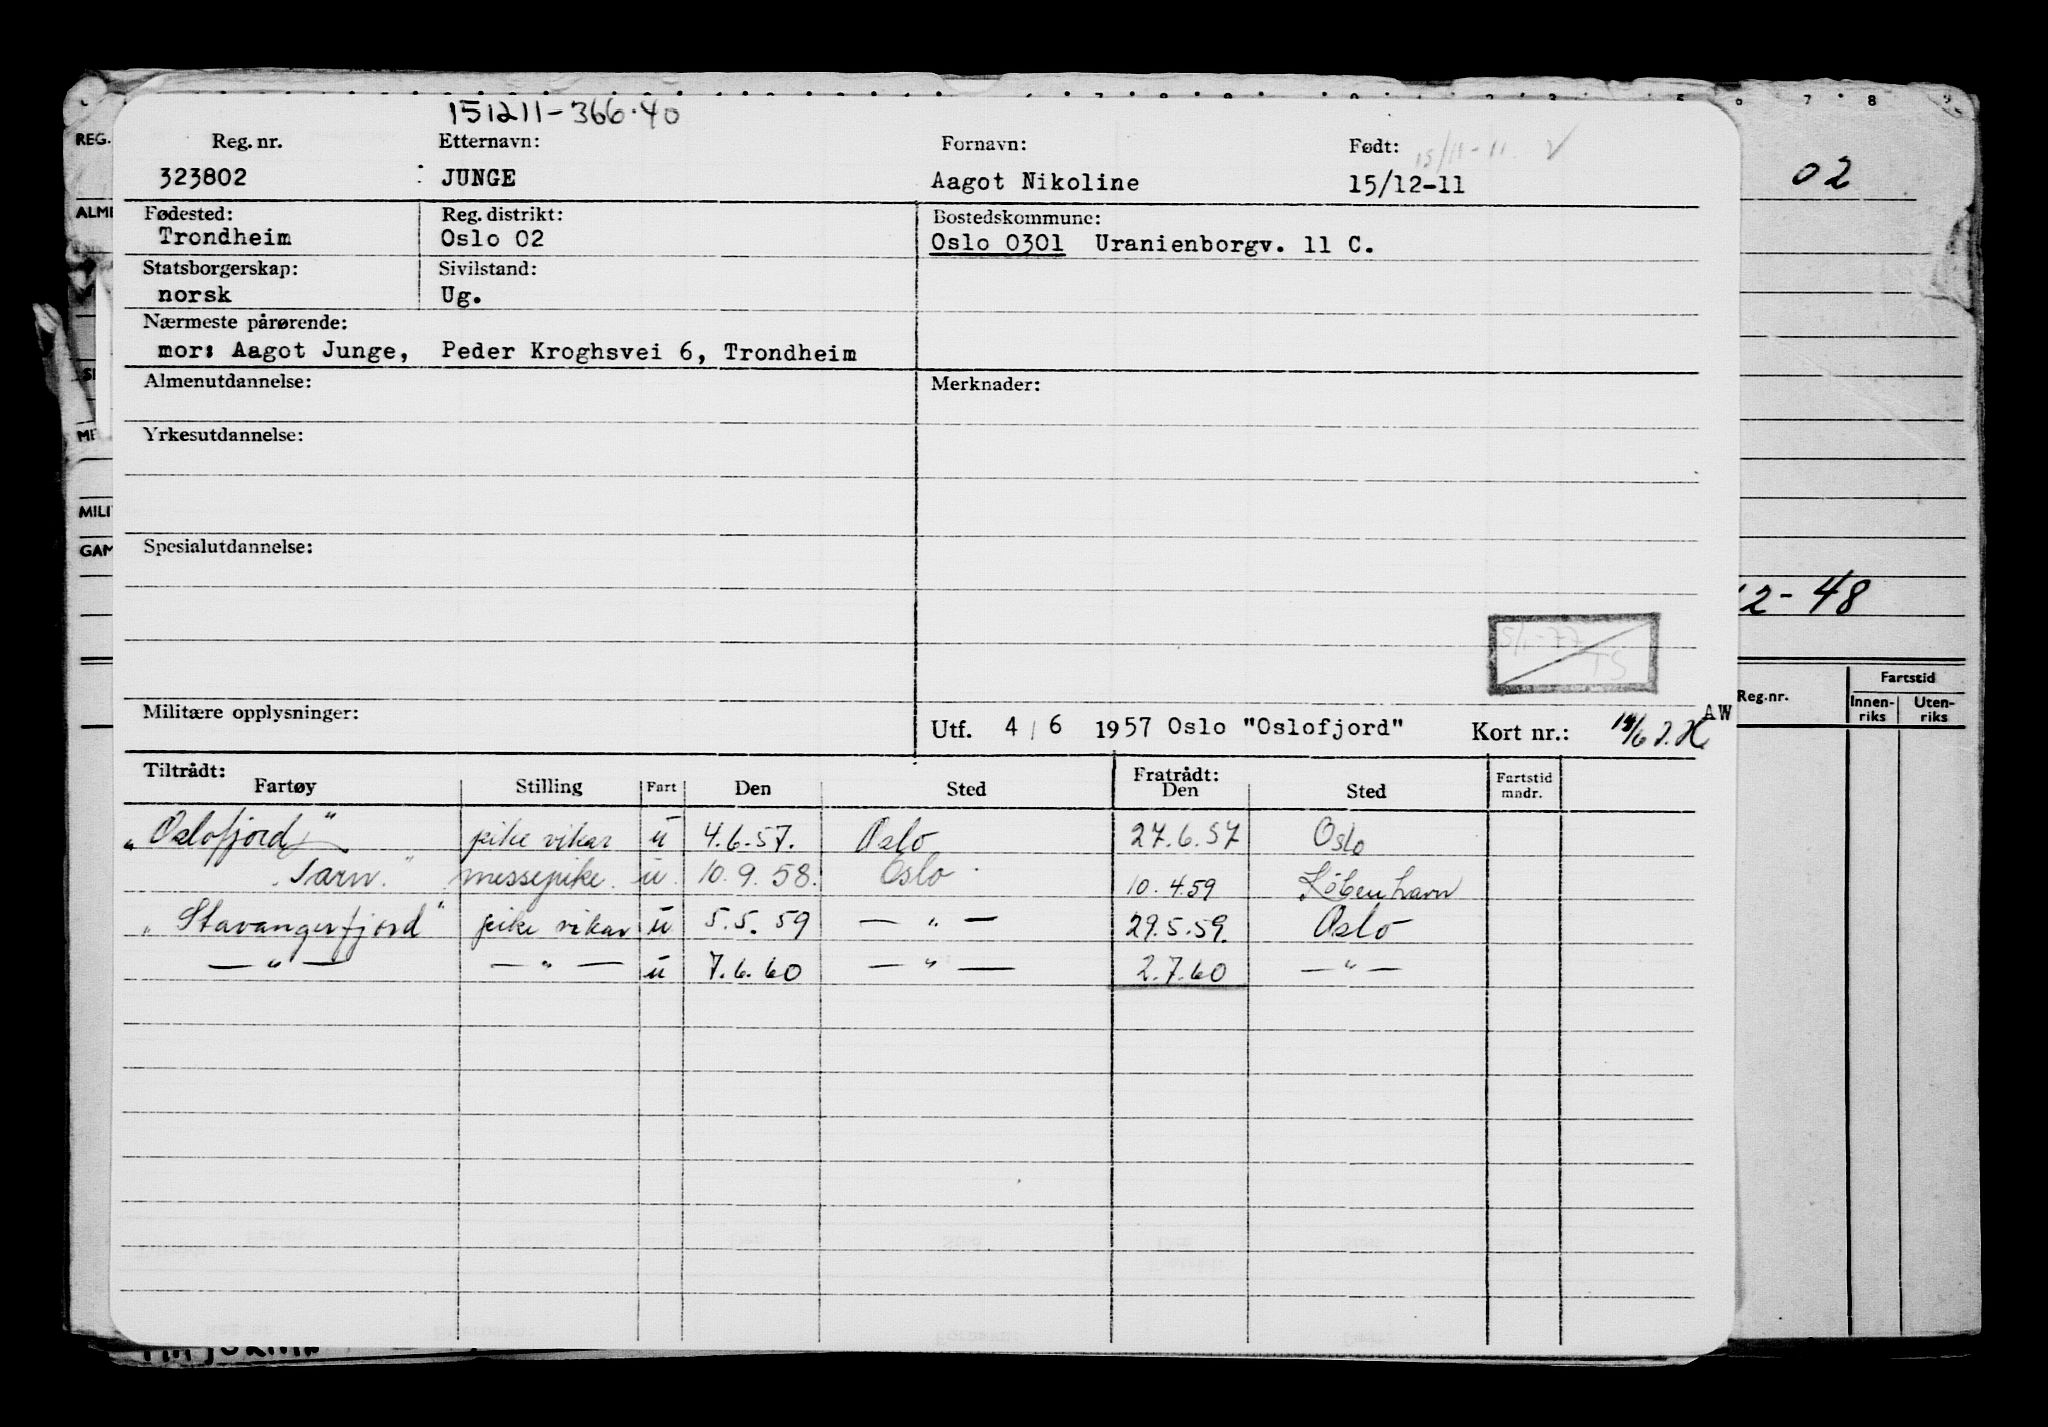 151211-366.40
Reg. nr. Etternavn: Fornavn: Født: 15/11-11. V
323802 JUNGE Aagot Nikoline 15/12-11
Fødested: Reg. distrikt: Bostedskommune:
Trondheim Oslo 02 Oslo 0301 Uranienborgv. 11 C.
Statsborgerskap: Sivilstand:
norsk Ug.
Nærmeste pårørende:
mor: Aagot Junge, Peder Kroghsvei 6, Trondheim
Almenutdannelse: Merknader:
Yrkesutdannelse:
Spesialutdannelse:
5/1-77
TS
Militære opplysninger: Utf. 4/6 1957 Oslo "Oslofjord" Kort nr.: AW
Tiltrådt: Fratrådt:
Fartøy Stilling Fart Den Sted Den Sted Fartstid mndr.
"Oslofjord" pike vikar u 4.6.57. Oslo 27.6.57 Oslo
"Tarn." messepike. u 10.9.58. Oslo 10.4.59 København
"Stavangerfjord" pike vikar u 5.5.59 — " — 29.5.59. Oslo
— " — — " — u 7.6.60 — " — 2.7.60 — " —
REG.
02
MILI
GAM
2-48
Reg.nr. Fartstid
Innen-riks Uten-riks